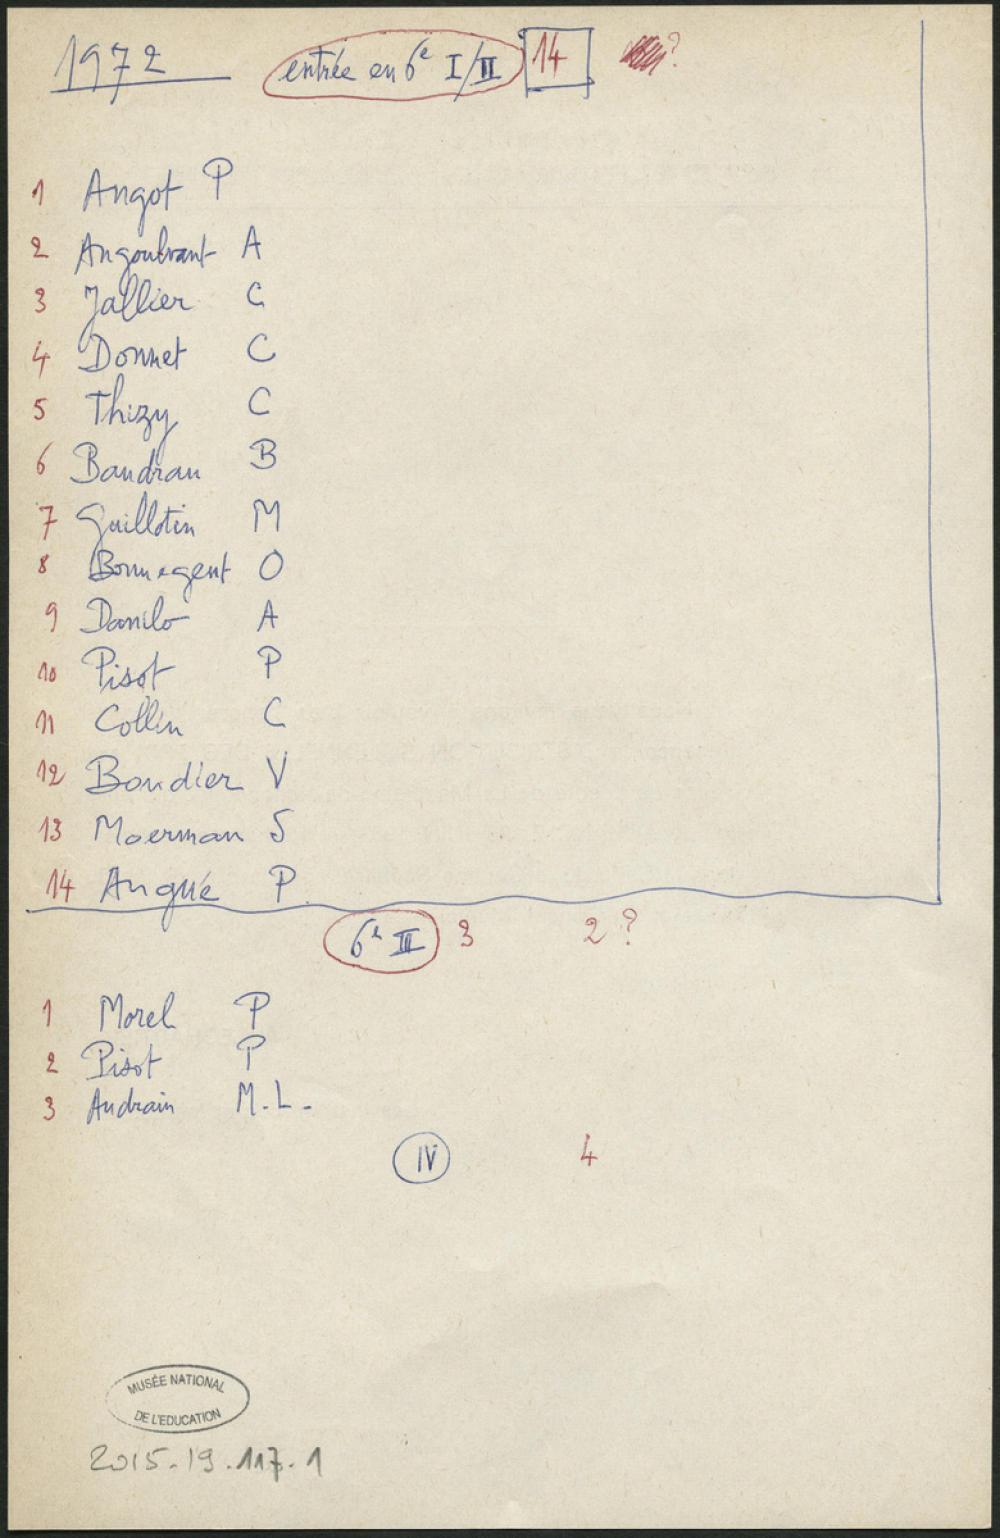 1972 entrée en 6e I/II 14 ?
1 Angot P
2 Angoulvant A
3 Jallier C
4 Donnet C
5 Thizy C
6 Baudrau B
7 Guillotin M
8 Bonnegent O
9 Danilo A
10 Pisot P
11 Collin C
12 Boudier V
13 Moerman S
14 Angué P
6e III 3 2 ?
1 Morel P
2 Pisot P
3 Audrain M.L.
IV 4
MUSÉE NATIONAL
DE L'EDUCATION
2015.19.117.1